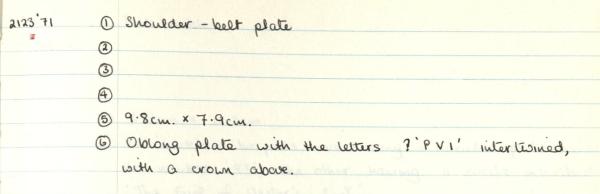 2123'71 ① Shoulder - belt plate
②
③
④
⑤ 9.8cm. x 7.9cm.
⑥ Oblong plate with the letters ? 'PVI' intertwined,
with a crown above.